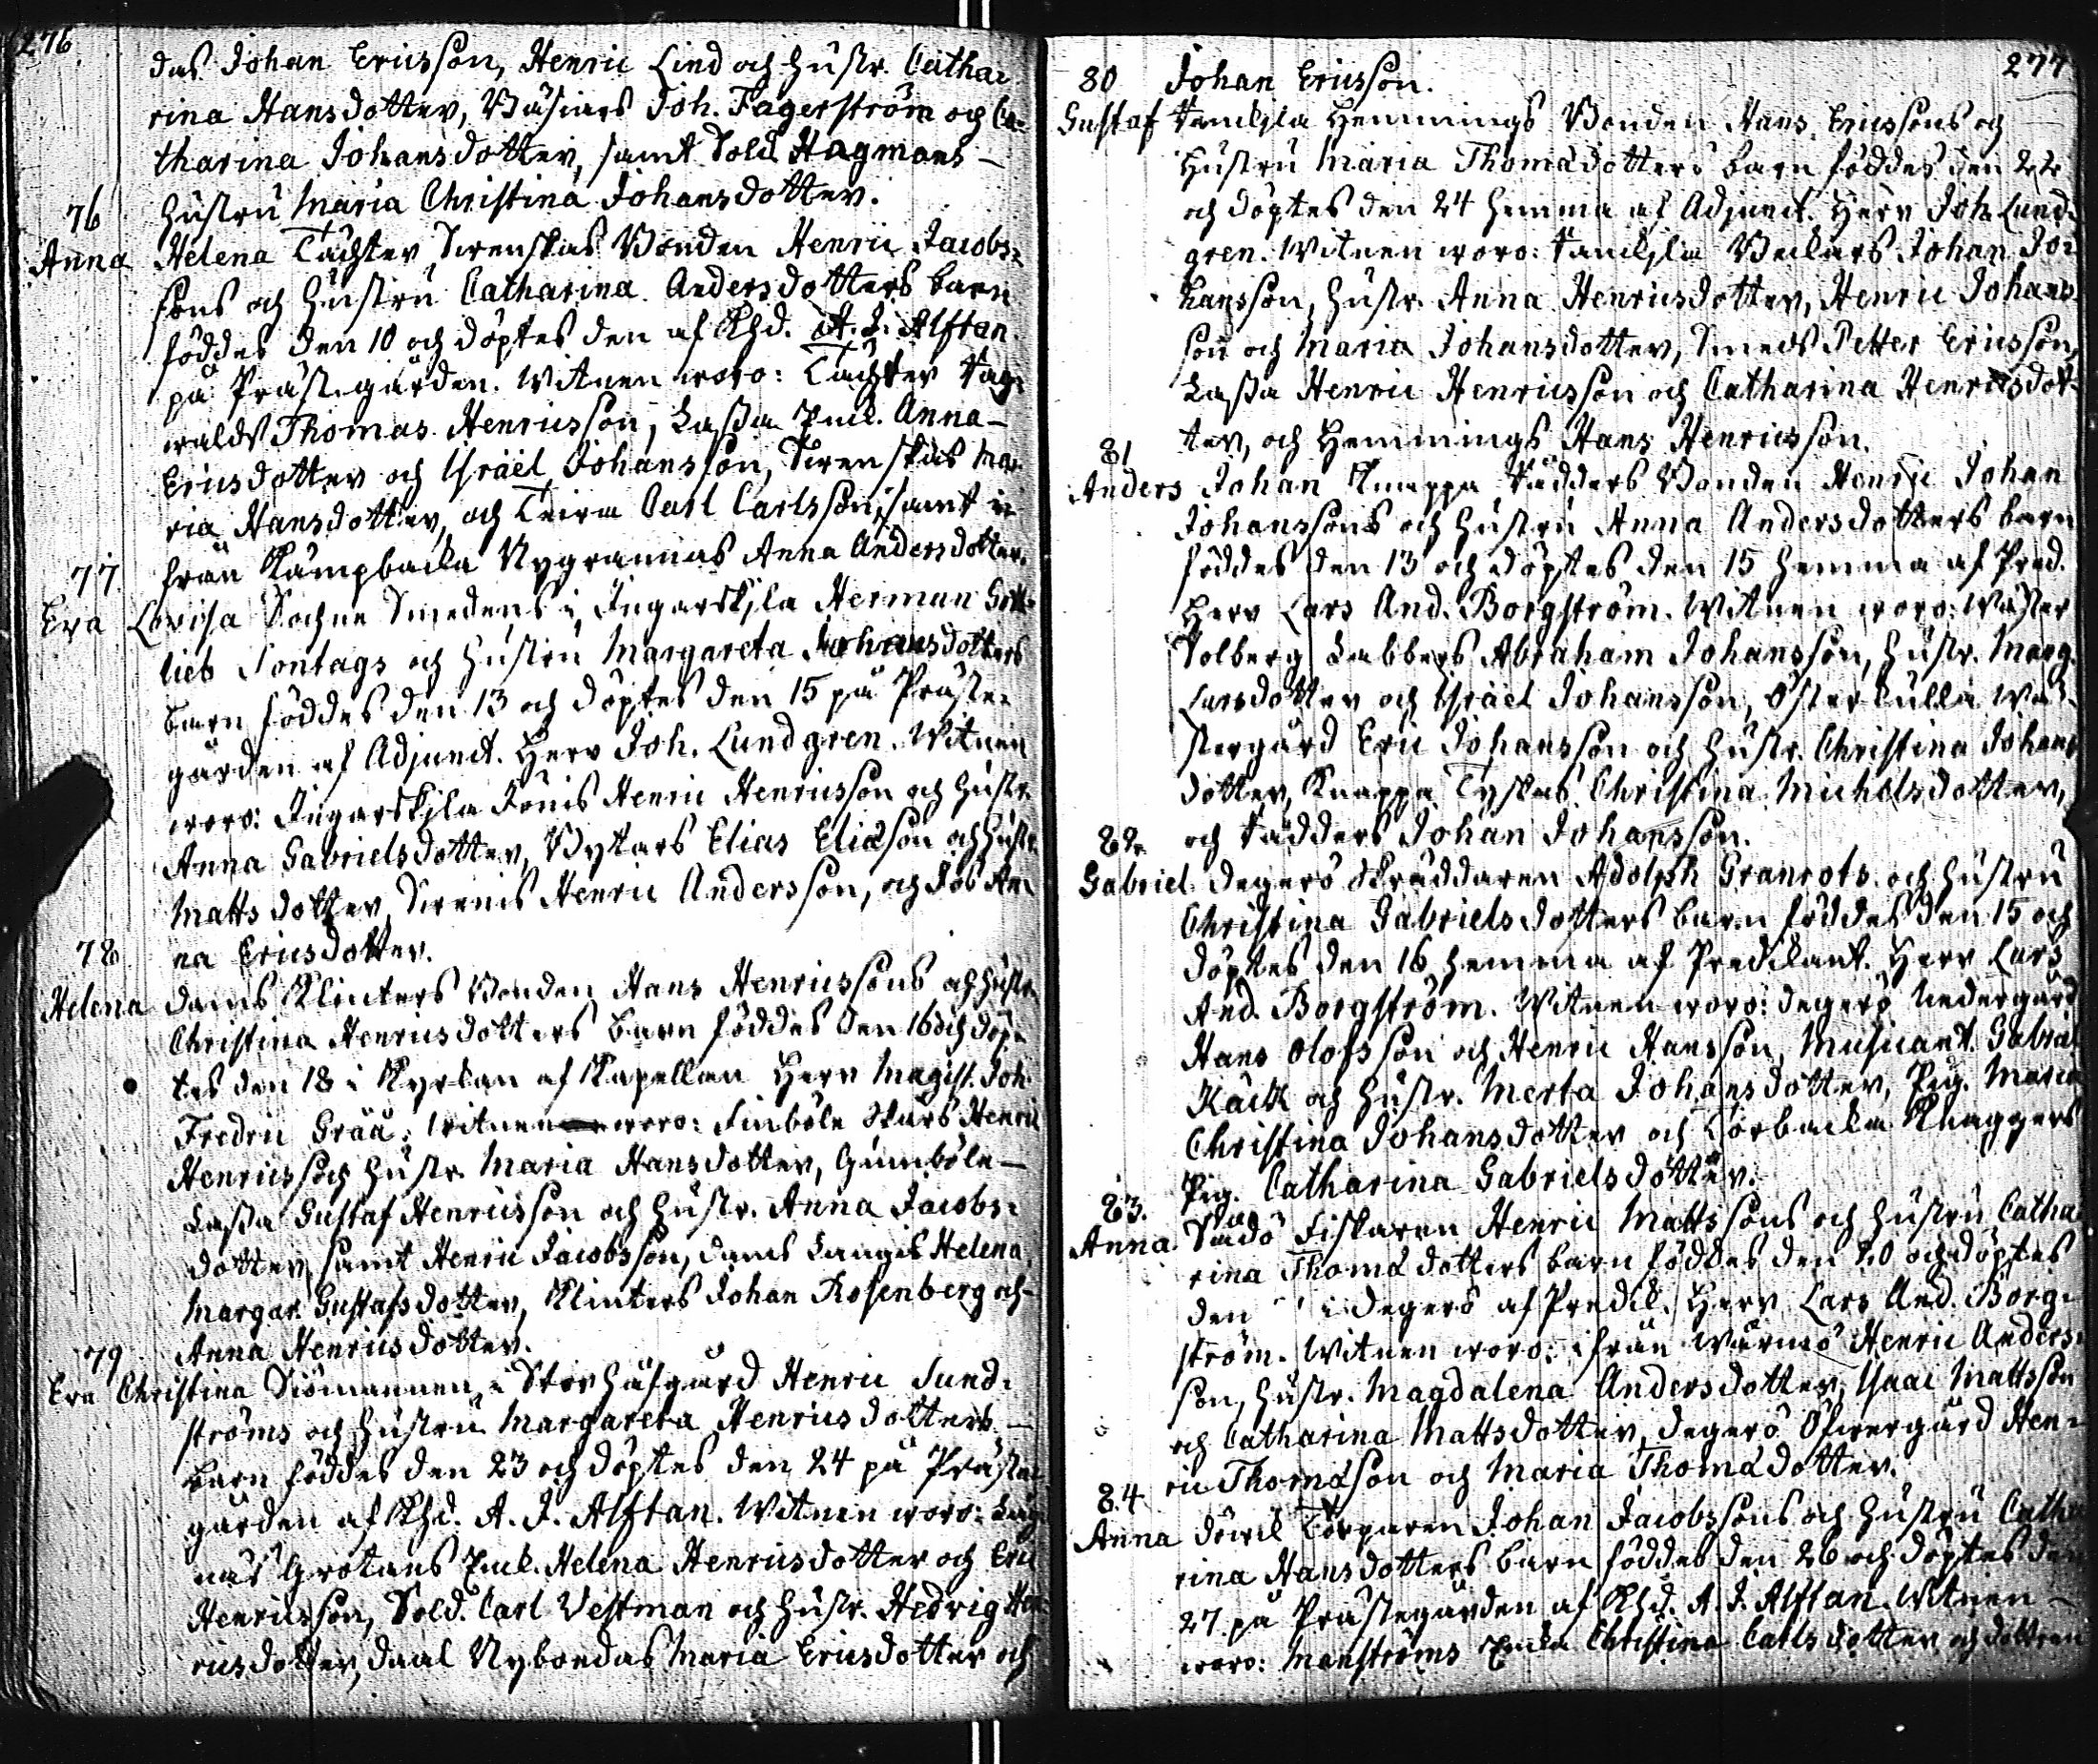 276.
das Johan Ericsson, Henric Lind och hustr. Catha-
rina Hansdotter, Joh. Fagerström och Ca-
tharina Johansdotter, samt Sold. Hagmans
hustru Maria Christina Johansdotter.
76
Anna Helena Tächter Svenskas Bonden Henric Jacobs-
sons och hustru Catharina Andersdotters barn
föddes den 10 och döptes den af Khd. A. J. Alftan
på Prästegården. Witnen woro: Tächter
Thomas Henricsson, Lassa Enk. Anna
Ericsdotter och Israël Johansson, Svenskas Ma-
ria Hansdotter, och Carl Carlsson, samt i
från Kämpbacka Nygrannas Anna Andersdotter.
77.
Eva Lovisa Sochne Smedens i Ingarskjla Herman Gott-
lieb Sontags och hustru Margareta Johansdotters
barn föddes den 13 och döptes den 15 på Präste-
gården af Adjunct. Herr Joh. Lundgren. Witnen
woro: Ingarskjla Jönis Henric Henricsson och hustr.
Anna Gabrielsdotter, Bytars Elias Eliasson och hustr.
Mattsdotter, Henric Andersson, och An-
na Ericsdotter.
78
Helena Dams Klinters Bonden Hans Henricssons och hustr.
Christina Henricsdotters barn föddes den 16 och döp-
tes den 18 i Kyrkan af Kapellan Herr Magist. Joh.
Fredric Gråå. Witnen woro: Finböle Henric
Henricss och hustr. Maria Hansdotter, Gumböle
Lassa Gustaf Henricsson och hustr. Anna Jacobs-
dotter, samt Henric Jacobsson, Dams Langis Helena
Margar. Gustafsdotter, Klinters Johan Rosenberg och
Anna Henricsdotter.
79
Eva Christina Siömannen i Storhäfgård Henric Sund-
ströms och hustru Margareta Henricsdotters
barn föddes den 23 och döptes den 24 på Präste-
gården af Khd. A. J. Alftan. Witnen woro:
näs Grotans Enk. Helena Henricsdotter och Eric
Henricsson, Sold. Carl Vestman och hustr. Hedvig Hen-
ricsdotter, Daal Nybondas Maria Ericsdotter och
277
80 Johan Ericsson.
Gustaf Hemmings Bonden Hans Ericssons och
hustru Maria Thomädotters barn föddes den 22
och döptes den 24 hemma af Adjunct. Herr Joh. Lund-
gren. Witnen woro: Johan Jo-
hansson, hustr. Anna Henricsdotter, Henric Johans-
son och Maria Johansdotter, Smeds Petter Ericsson,
Lassa Henric Henricsson och Catharina Henricsdot-
ter, och Hemmings Hans Henricsson.
81
Anders Johan Knappa Fädders Bonden Henric Johan
Johanssons och hustru Anna Andersdotters barn
föddes den 13 och döptes den 15 hemma af Pred.
Herr Lars And. Borgström. Witnen woro: Wäster
Solberg Labbers Abraham Johansson, hustr. Marg.
Larsdotter och Israël Johansson, Österkulla Wä-
stergård Eric Johansson och hustr. Christina Johans-
dotter, Knappa Tyskas Christina Michelsdotter,
och Fädders Johan Johansson.
82.
Gabriel Degerö Skräddaren Adolph Granrots och hustru
Christina Gabrielsdotters barn föddes den 15 och
döptes den 16 hemma af Predikant. Herr Lars
And. Borgström. Witnen woro: Degerö Nedergård
Hans Olofsson och Henric Hansson, Musicant. Gabriel
Käck och hustr. Merta Johansdotter, Pig. Maria
Christina Johansdotter och Torbacka Klaggers
Pig. Catharina Gabrielsdotter.
83.
Anna. Fiskaren Henric Mattssons och hustru Catha-
rina Thomädotters barn föddes den 20 och döptes
den i Degerö af Predik. Herr Lars And. Borg-
ström. Witnen woro: ifrån Wårnsö Henric Anders-
son, hustr. Magdalena Andersdotter, Isaac Mattsson
och Catharina Mattsdotter, Degerö Öfvergård Hen-
ric Thomäson och Maria Thomädotter.
84
Anna Torparen Johan Jacobssons och hustru Catha-
rina Hansdotters barn föddes den 26 och döptes den
27. på Prästegården af Khd. A. J. Alftan. Witnen
woro: Manströms Enka Christina Carlsdotter och dottren